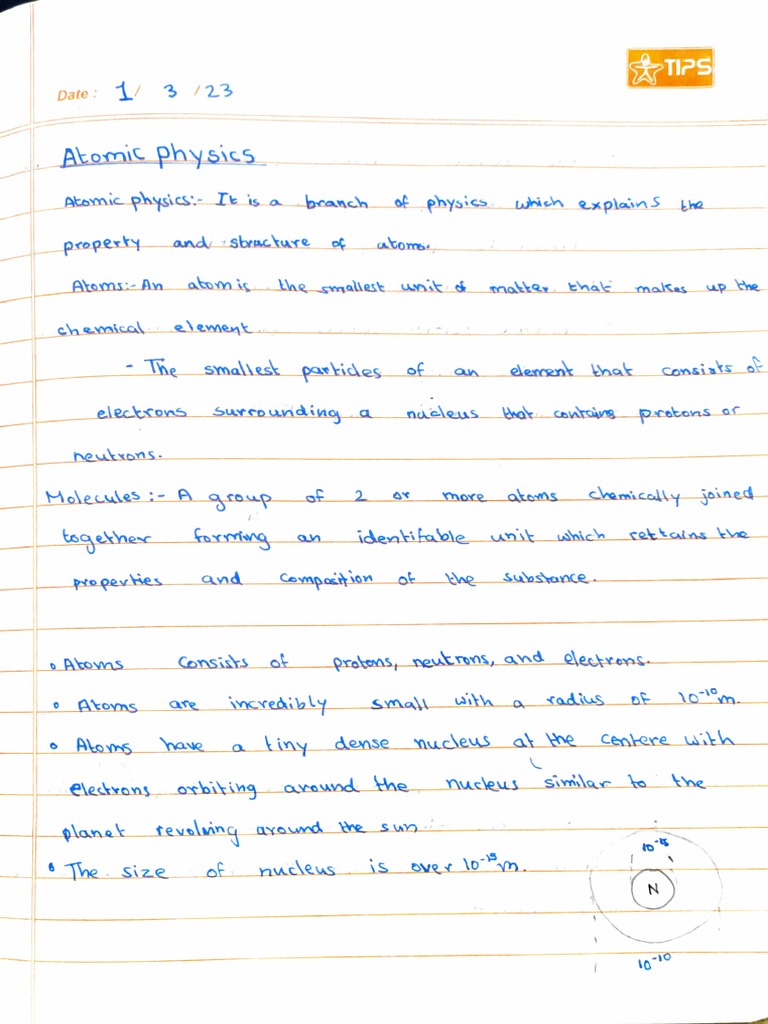 TIPS
Date : 1/ 3 /23
Atomic physics
Atomic physics:- It is a branch of physics which explains the
property and structure of atoms.
Atoms:- An atom is the smallest unit of matter that makes up the
chemical element.
- The smallest particles of an element that consists of
electrons surrounding a nucleus that contains protons or
neutrons.
Molecules :- A group of 2 or more atoms chemically joined
together forming an identifable unit which rettains the
properties and composition of the substance.
• Atoms consists of protons, neutrons, and electrons.
• Atoms are incredibly small with a radius of 10⁻¹⁰m.
• Atoms have a tiny dense nucleus at the centere with
electrons orbiting around the nucleus similar to the
planet revolving around the sun.
• The size of nucleus is over 10⁻¹⁵m.
10⁻¹⁵
N
10⁻¹⁰